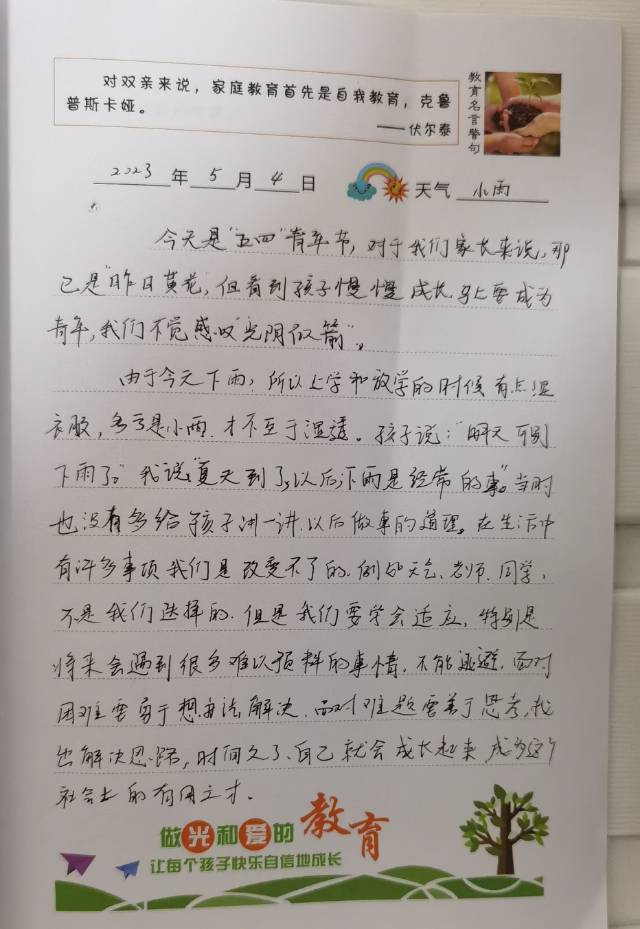 对双亲来说，家庭教育首先是自我教育，克鲁
普斯卡娅。
——伏尔泰
教育名言警句
2023年5月4日 天气 小雨
今天是“五四”青年节，对于我们家长来说，那
已是“昨日黄花”，但看到孩子慢慢成长，马上要成为
青年，我们不觉感叹“光阴似箭”。
由于今天下雨，所以上学和放学的时候有点湿
衣服，多亏是小雨，才不至于湿透。孩子说：“明天可别
下雨了。”我说：“夏天到了，以后下雨是经常的事”。当时
也没有多给孩子讲一讲，以后做事的道理。在生活中
有许多事项我们是改变不了的，例如天气、老师、同学，
不是我们选择的，但是我们要学会适应，特别是
将来会遇到很多难以预料的事情，不能逃避，面对
困难要勇于想办法解决，面对难题要善于思考，找
出解决思路，时间久了，自己就会成长起来，成为这个
社会上的有用之才。
做光和爱的教育
让每个孩子快乐自信地成长